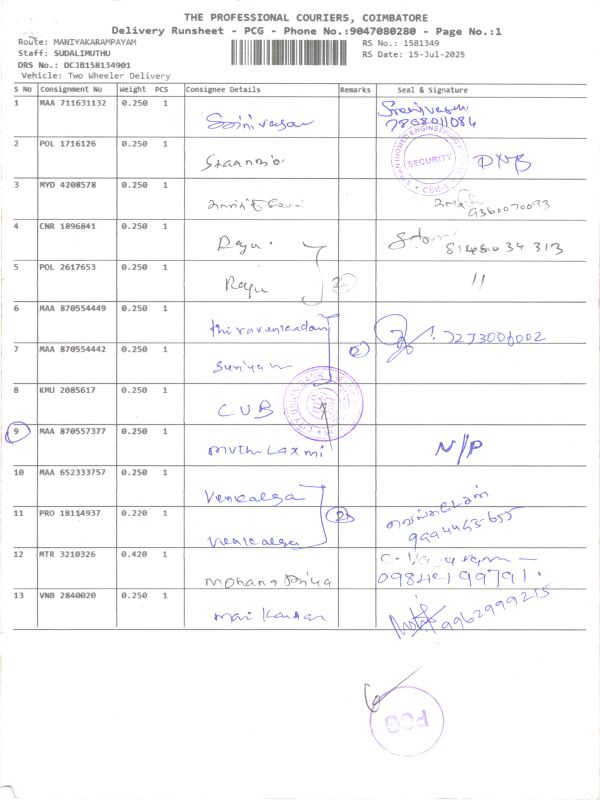 THE PROFESSIONAL COURIERS, COIMBATORE
Delivery Runsheet - PCG - Phone No.:9047080280 - Page No.:1
Route: MANIYAKARAMPAYAM
RS No.: 1581349
Staff: SUDALIMUTHU
RS Date: 15-Jul-2025
DRS No.: DCJ8158134901
Vehicle: Two Wheeler Delivery
S No Consignment No Weight PCS Consignee Details Remarks Seal & Signature
1 MAA 711631132 0.250 1 Srinivasan Srinivasan
7868011084
2 POL 1716126 0.250 1 SECURITY DNB
3 MYD 4208578 0.250 1 9360070093
4 CNR 1896841 0.250 1 Raju 8148034313
5 POL 2617653 0.250 1 Raju 2 "
6 MAA 870554449 0.250 1 thiravenkadam 7273008002
7 MAA 870554442 0.250 1 Suriyan 2
8 KMU 2085617 0.250 1 CUB
9 MAA 870557377 0.250 1 muthu Laxmi N/P
10 MAA 652333757 0.250 1 Venkatesa
11 PRO 18114937 0.220 1 Venkatesa 2
12 MTR 3210326 0.420 1 Mohana Priya 0984199791
13 VNB 2840020 0.250 1 Mari Kannan 9962999215
PCG